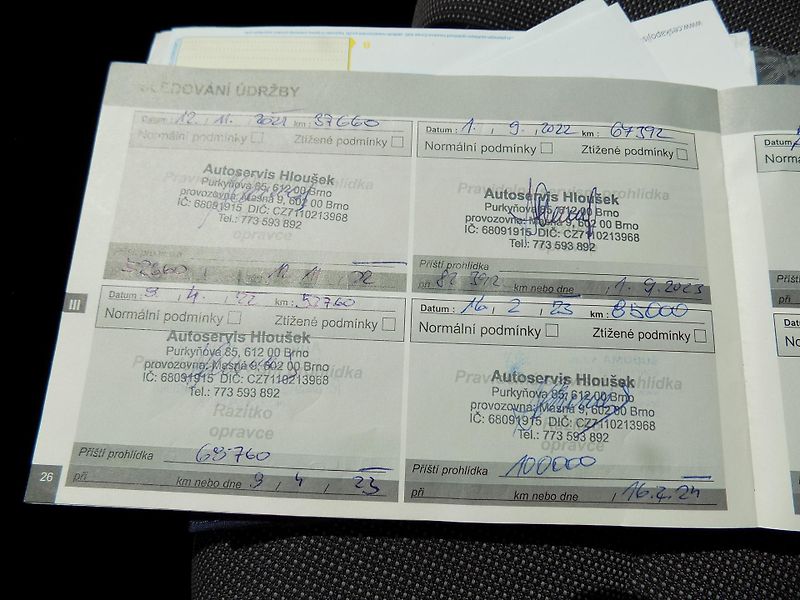 SLEDOVÁNÍ ÚDRŽBY
12. 11. 2021 km: 37660
Normální podmínky Ztížené podmínky
Autoservis Hloušek
Purkyňova 85, 612 00 Brno
provozovna: Masná 9, 602 00 Brno
IČ: 68091915 DIČ: CZ7110213968
Tel.: 773 593 892
opravce
52660 12 11 22
Datum : 9. 4. 22 km : 53760
Normální podmínky Ztížené podmínky
Autoservis Hloušek
Purkyňova 85, 612 00 Brno
provozovna: Masná 9, 602 00 Brno
IČ: 68091915 DIČ: CZ7110213968
Tel.: 773 593 892
Razítko
opravce
Příští prohlídka 68760
při km nebo dne 9 , 4 , 23
Datum : 1. 9. 2022 km : 67392
Normální podmínky Ztížené podmínky
Pravidelná servisní prohlídka
Autoservis Hloušek
Purkyňova 85, 612 00 Brno
provozovna: Masná 9, 602 00 Brno
IČ: 68091915 DIČ: CZ7110213968
Tel.: 773 593 892
Příští prohlídka
při 82 392 km nebo dne 1. 9. 2023
Datum : 16, 2, 23 km : 85000
Normální podmínky Ztížené podmínky
Autoservis Hloušek
Purkyňova 85, 612 00 Brno
provozovna: Masná 9, 602 00 Brno
IČ: 68091915 DIČ: CZ7110213968
Tel.: 773 593 892
Příští prohlídka 100000
při km nebo dne , 16.2.24
III
26